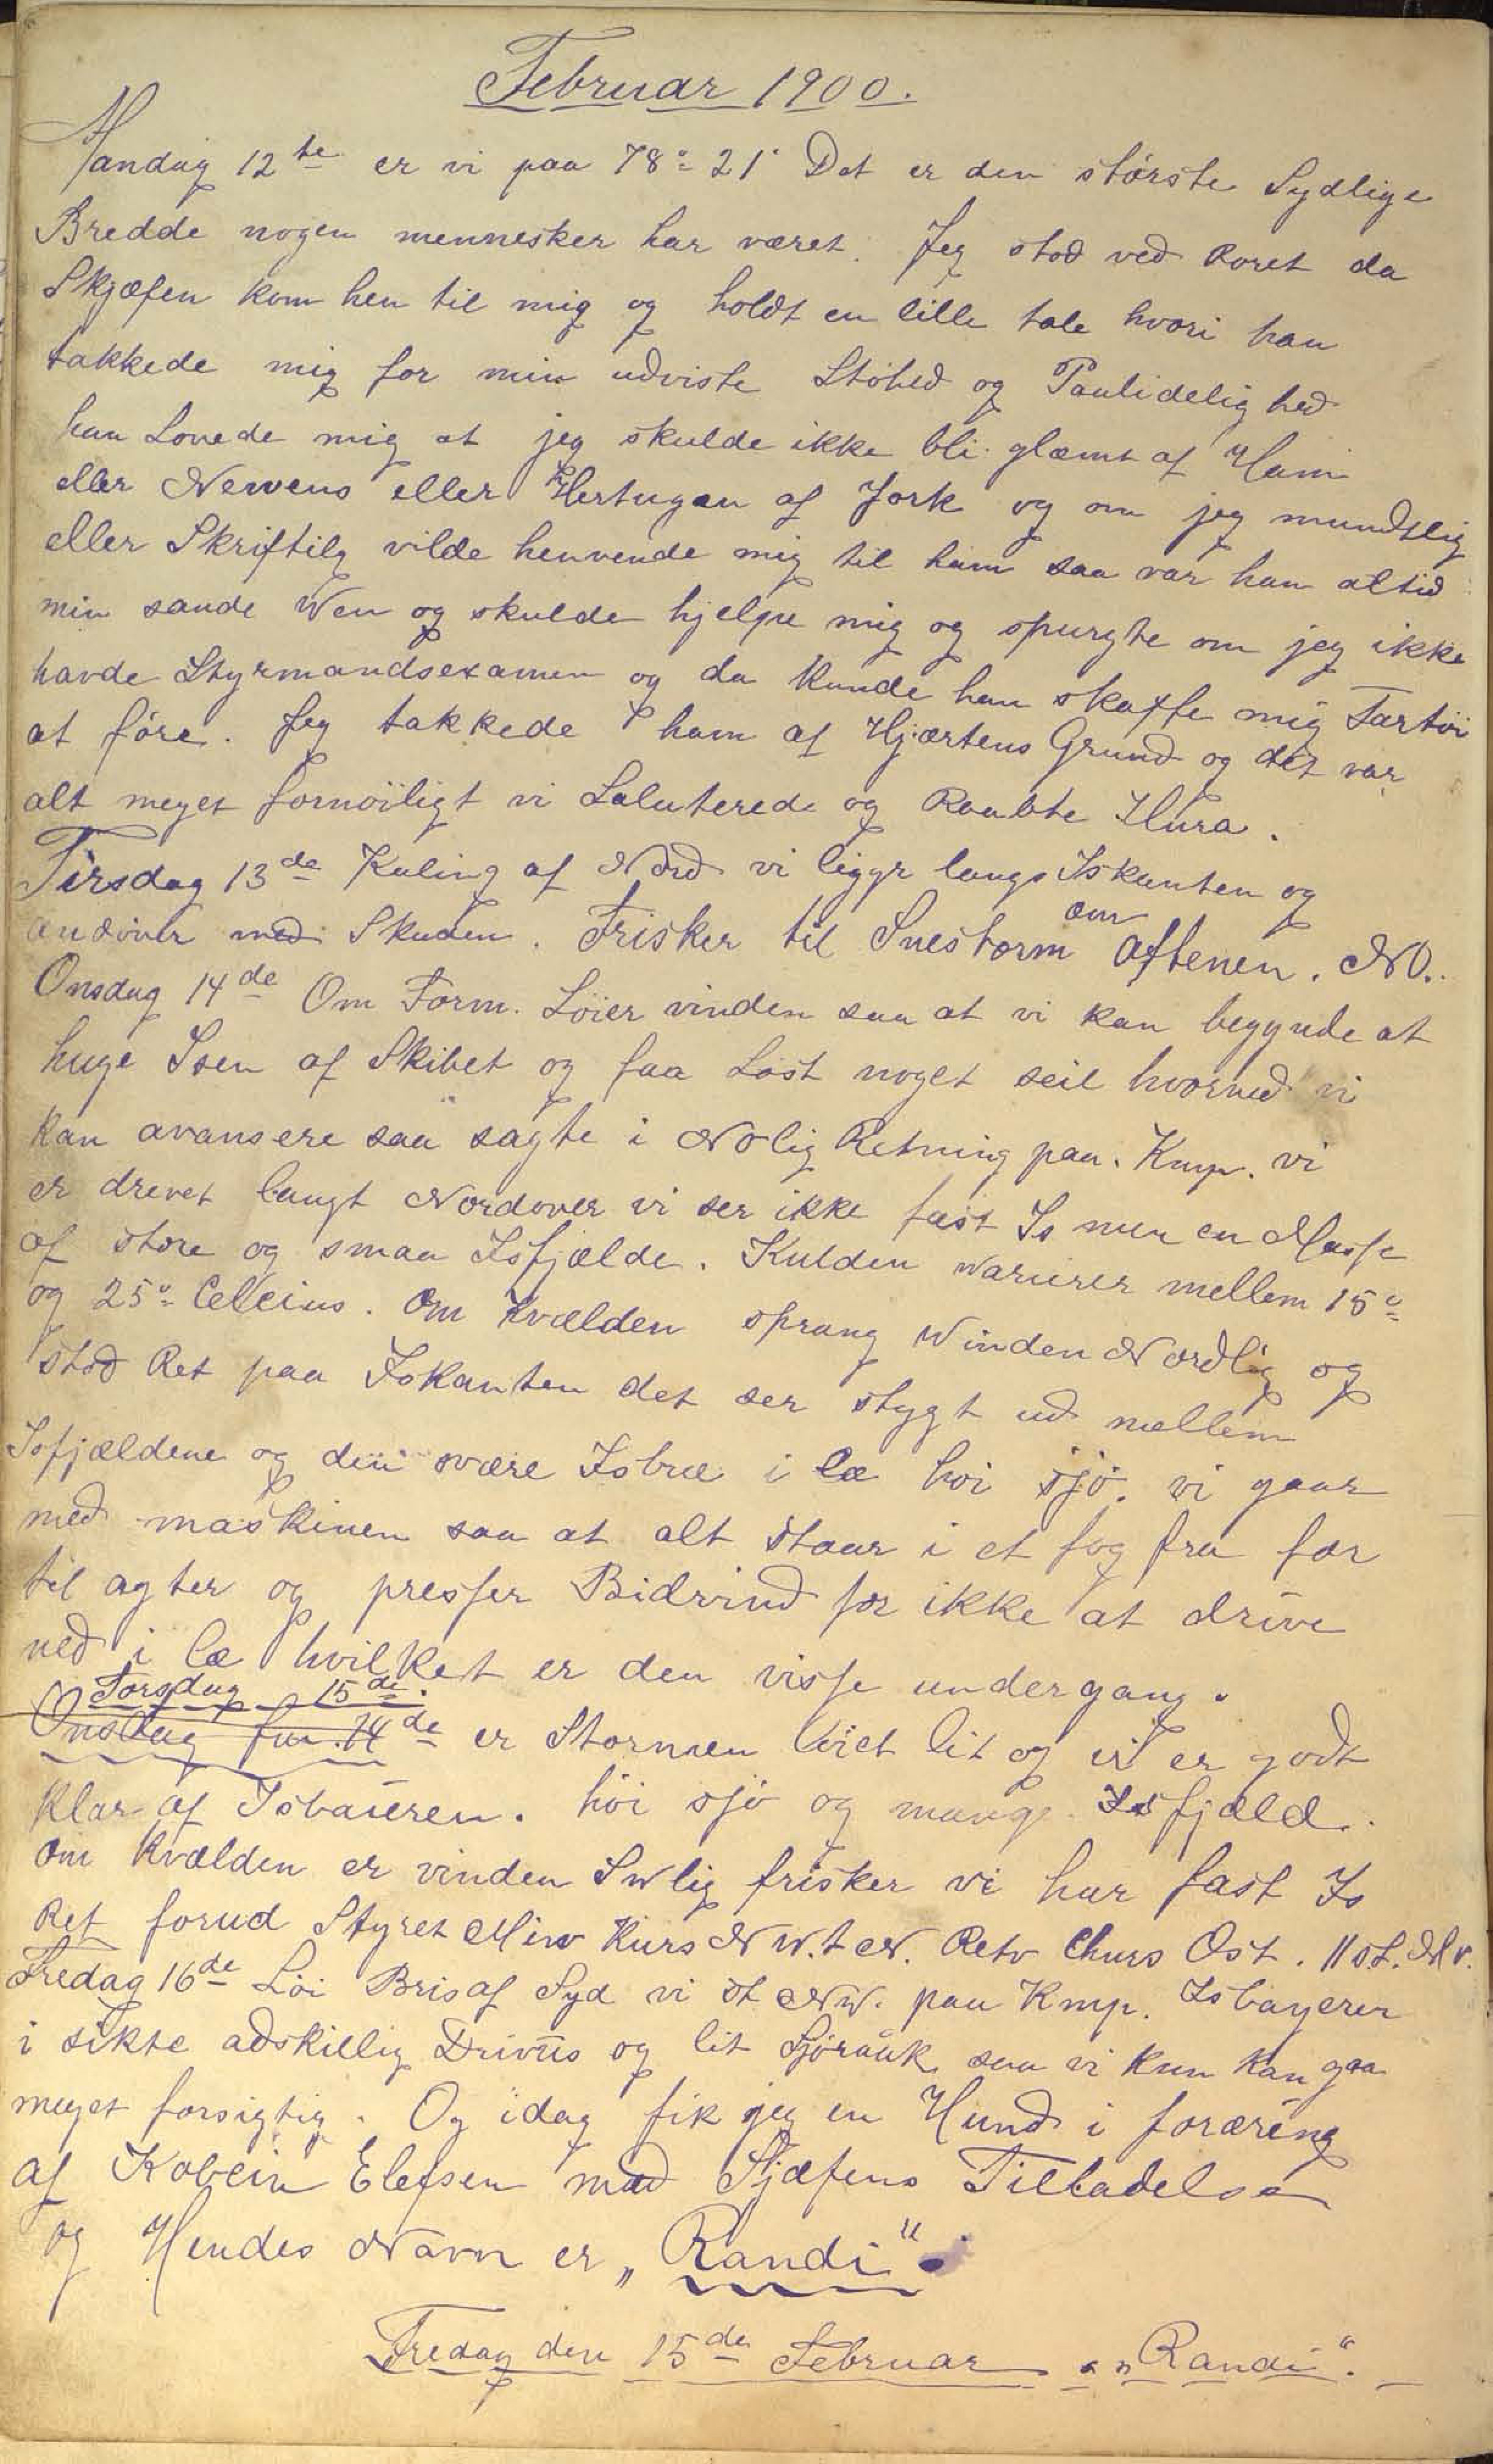 Februar 1900.
Mandag 12te er vi paa 78° 21' Det er den største Sydlige
Bredde nogen mennesker har været. Jeg stod ved Roret da
Skjæfen kom hen til mig og holdt en lille tale hvori han
takkede mig for min udviste Støhed og Paalidelighed
han Lovede mig at jeg skulde ikke bli glæmt af Ham
eller Newens eller Hertugen af Jork og om jeg mundtlig
eller Skriftilg vilde henvende mig til ham saa var han altid
min sande Wen og skulde hjelpe mig og spurgte om jeg ikke
havde Styrmandsexamen og da kunde han skaffe mig Fartøi
at føre. Jeg takkede ham af Hjærtens Grund og det var
alt meget fornøiligt vi Saluterede og Raabte Hura.
Tirsdag 13de Kuling af Nord vi ligger langs Iskanten og
andøver med Skuden. Frisker til Snestorm om Aftenen. NO.
Onsdag 14de Om Form. Løier vinden saa at vi kan begynde at
huge Isen af Skibet og faa Løst noget seil hvormed vi
kan avansere saa sagte i NOlig Retning paa Kmp. vi
er drevet langt Nordover vi ser ikke fast Is men en Masse
af store og smaa Isfjælde. Kulden Warierer mellem 15°
og 25° Celcius. Om Kvælden sprang Winden Nordlig og
stod Ret paa Iskanten det ser stygt ud mellem
Isfjældene og den svære Isbræ i læ høi sjø. vi gaar
med maskinen saa at alt staar i et fog fra for
til agter og presser Bidevind for ikke at drive
ned i læ hvilket er den visse undergang.
Torsdag 15de.
Onsdag 14de er Stormen løiet lit og vi er godt
klar af Isbarieren. høi sjø og mange Isfjæld.
Om kvælden er vinden SWlig frisker vi har fast Is
Ret forud Styret Kurs NW.t.N. Retv Churs Ost.
Fredag 16de Løi Bris af Syd vi st NW. paa Kmp. Isbayerer
i sikte adskillig Drivis og lit Sjørauk saa vi kun kan gaa
meget forsigtig. Og idag fik jeg en Hund i foræring
af Kolbein Elefsen med Sjæfens Tilladelse
og Hendes Navn er „Randi".
Fredag den 15de Februar „Randi".